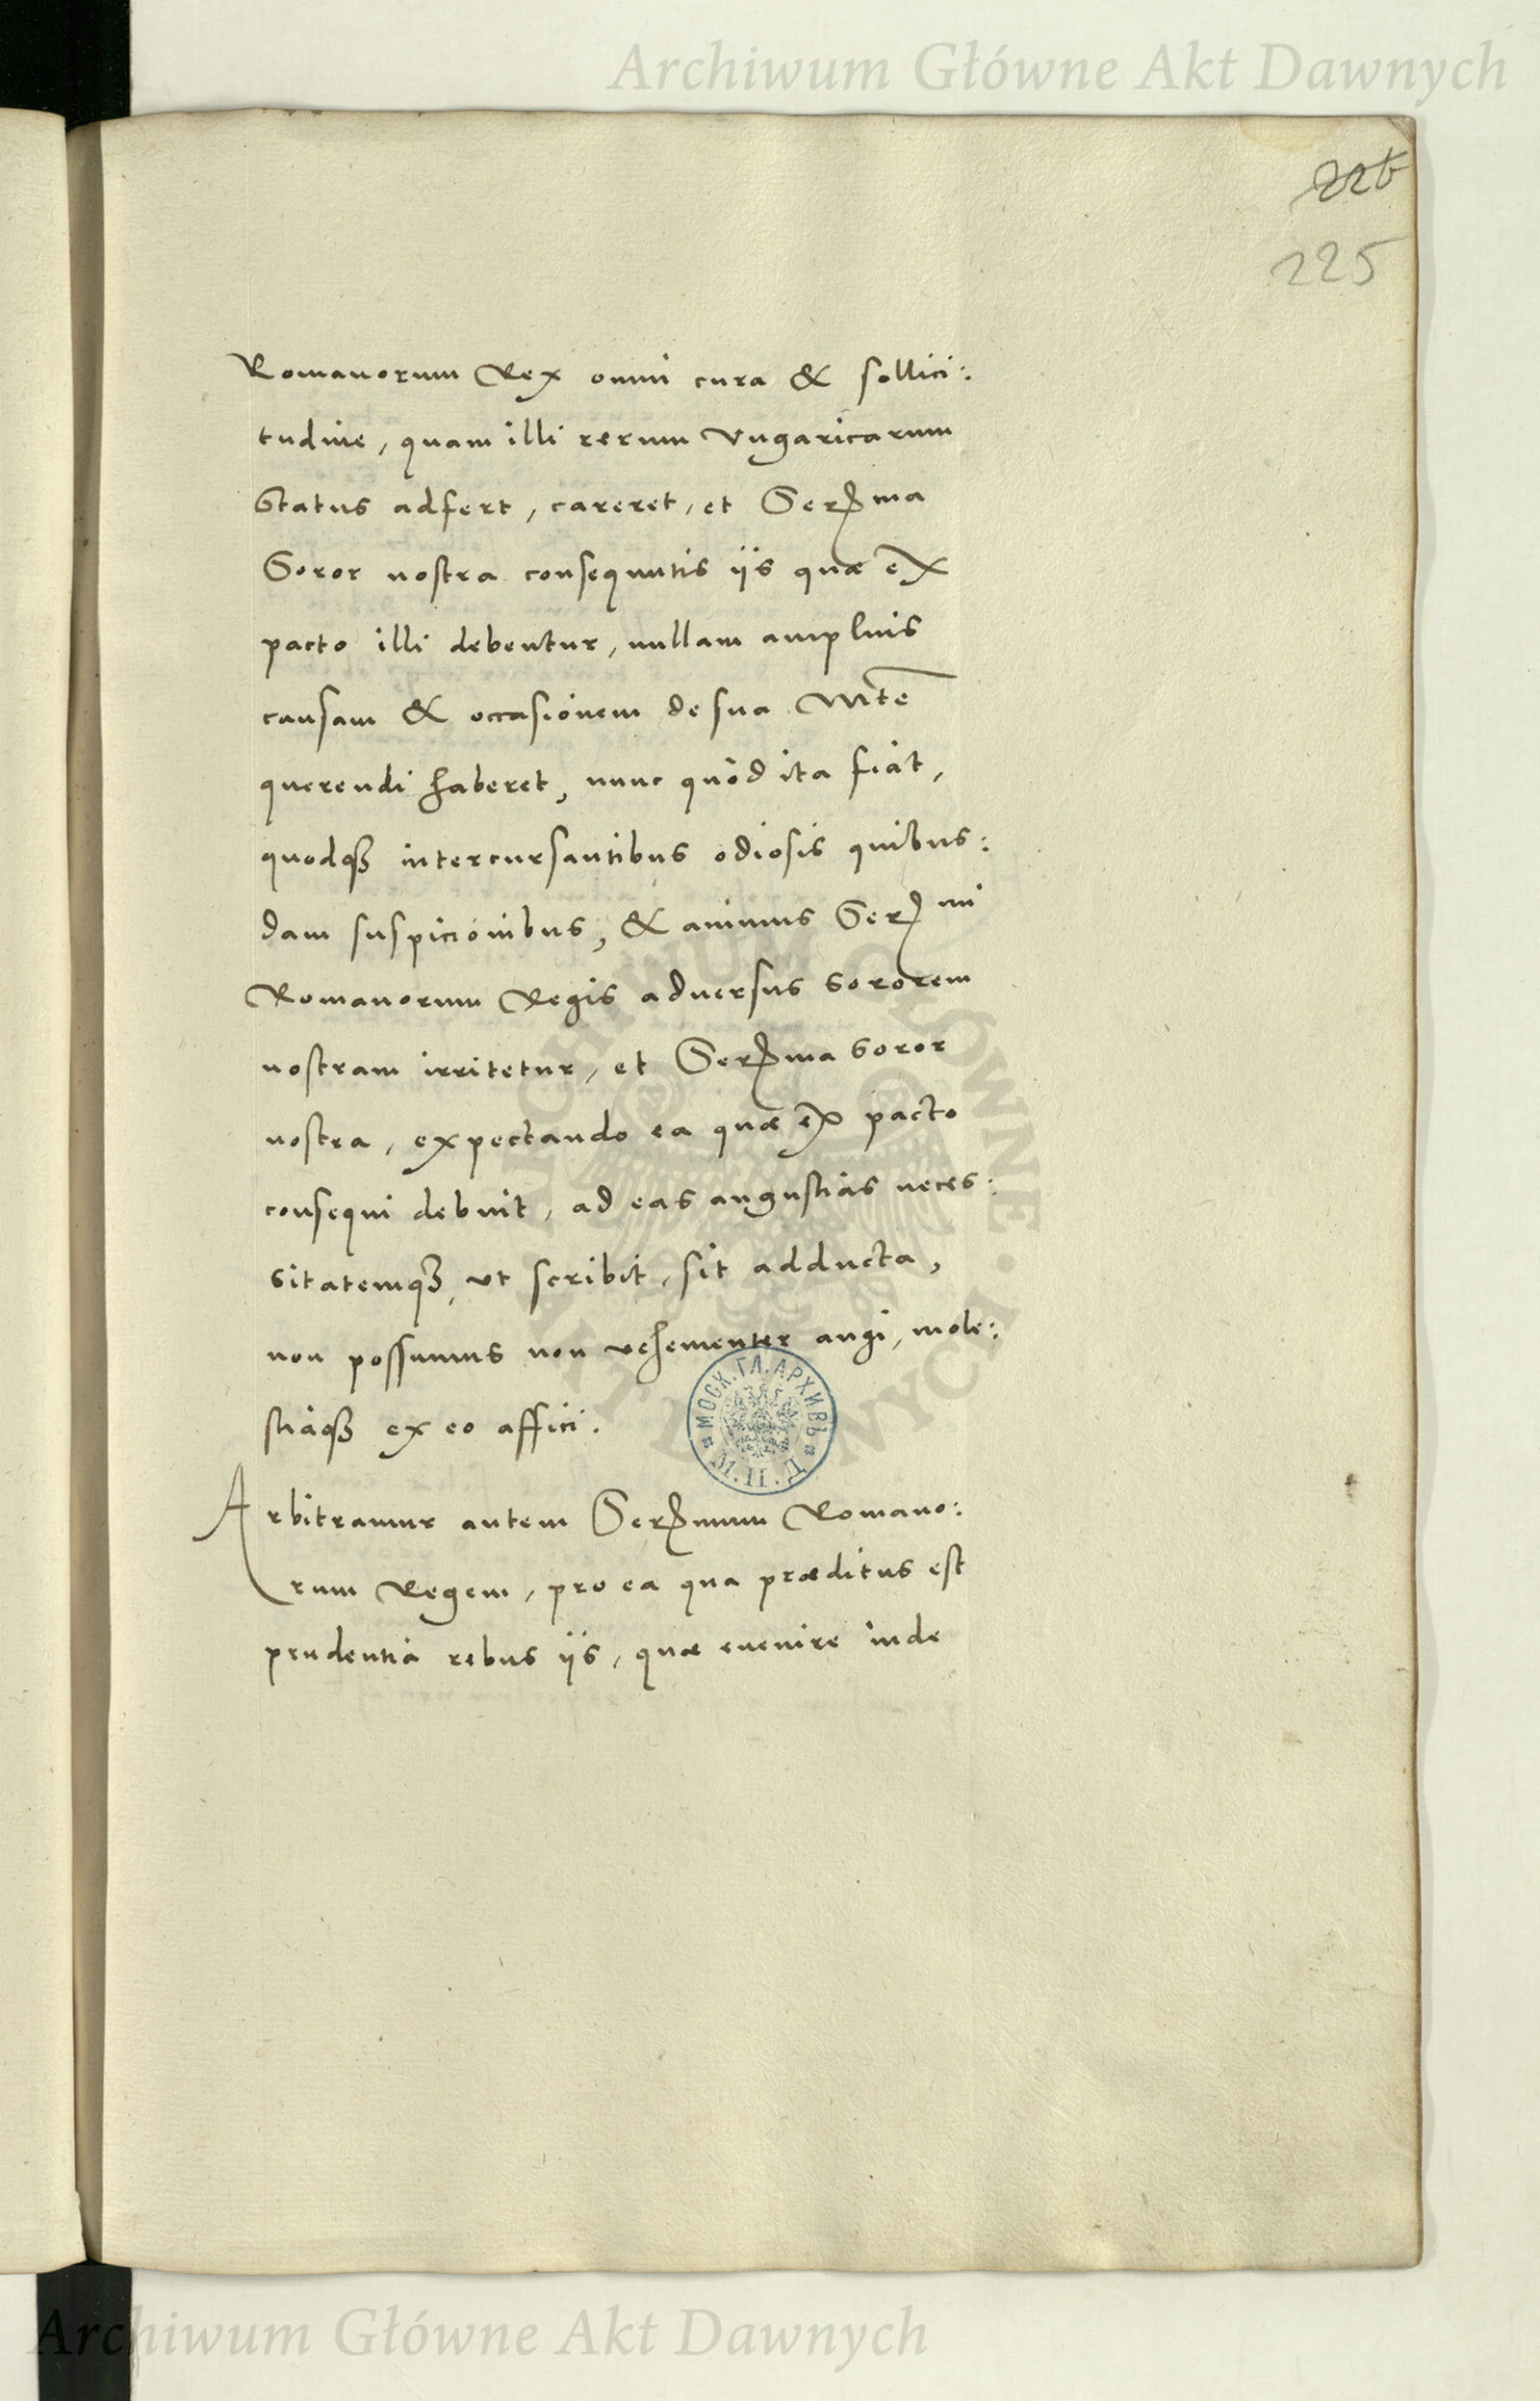 Archiwum Główne Akt Dawnych
226
225
Romanorum Rex omni cura & sollici:
tudine, quam illi rerum Vngaricarum
Status adfert, careret, et Serma
Soror nostra consequutis iis quæ ex
pacto illi debentur, nullam amplius
causam & occasionem de sua Mte
querendi haberet, nunc quòd ita fiat,
quodq3 intercursantibus odiosis quibus:
dam suspicionibus, & animus Sermi
Romanorum Regis aduersus sororem
nostram irritetur, et Serma soror
nostra, expectando ea quæ ex pacto
consequi debuit, ad eas angustias neces:
sitatemq3, vt scribit, sit adducta,
non possumus non vehementer angi, mole:
stiaq3 ex eo affici.
Arbitramur autem Sermum Romano:
rum Regem, pro ea qua præditus est
prudentia rebus iis, quæ euenire inde
МОСК. ГЛ. АРХИВЪ
Archiwum Główne Akt Dawnych